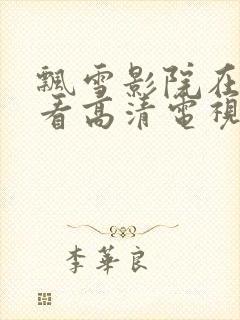 飄雪影院在
看高清電視
李華良